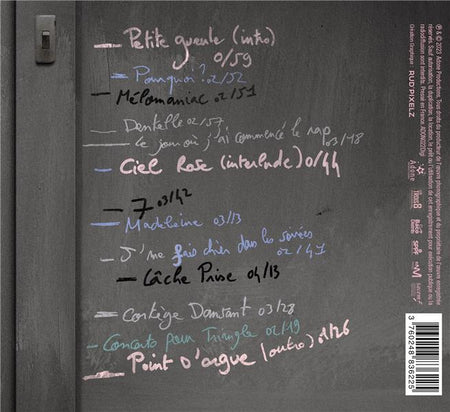 Petite gueule (intro)
0/59
Pourquoi ? 02/52
Mélomaniac 02/51
Dentelle 02/57
Le jour où j'ai commencé le rap
03/18
Ciel Rose (interlude) 0/44
7 03/42
Madeleine 03/13
J'me fais chier dans les soirées
02/41
Lâche Prise 04/13
Cortège Dansant 03/28
Concerto pour Triangle 02/19
Point D'orgue (outro) 01/26
℗ & © 2023 Adone Productions. Tous droits du producteur de l'œuvre phonographique et du propriétaire de l'œuvre enregistrée
réservés. Sauf autorisation, la duplication, la location, le prêt ou l'utilisation de cet enregistrement pour exécution publique ou la
radiodiffusion sont interdits. Pressé en France.
Créations Graphique :
RUD'PIXELZ
Adone
3 760248 836225